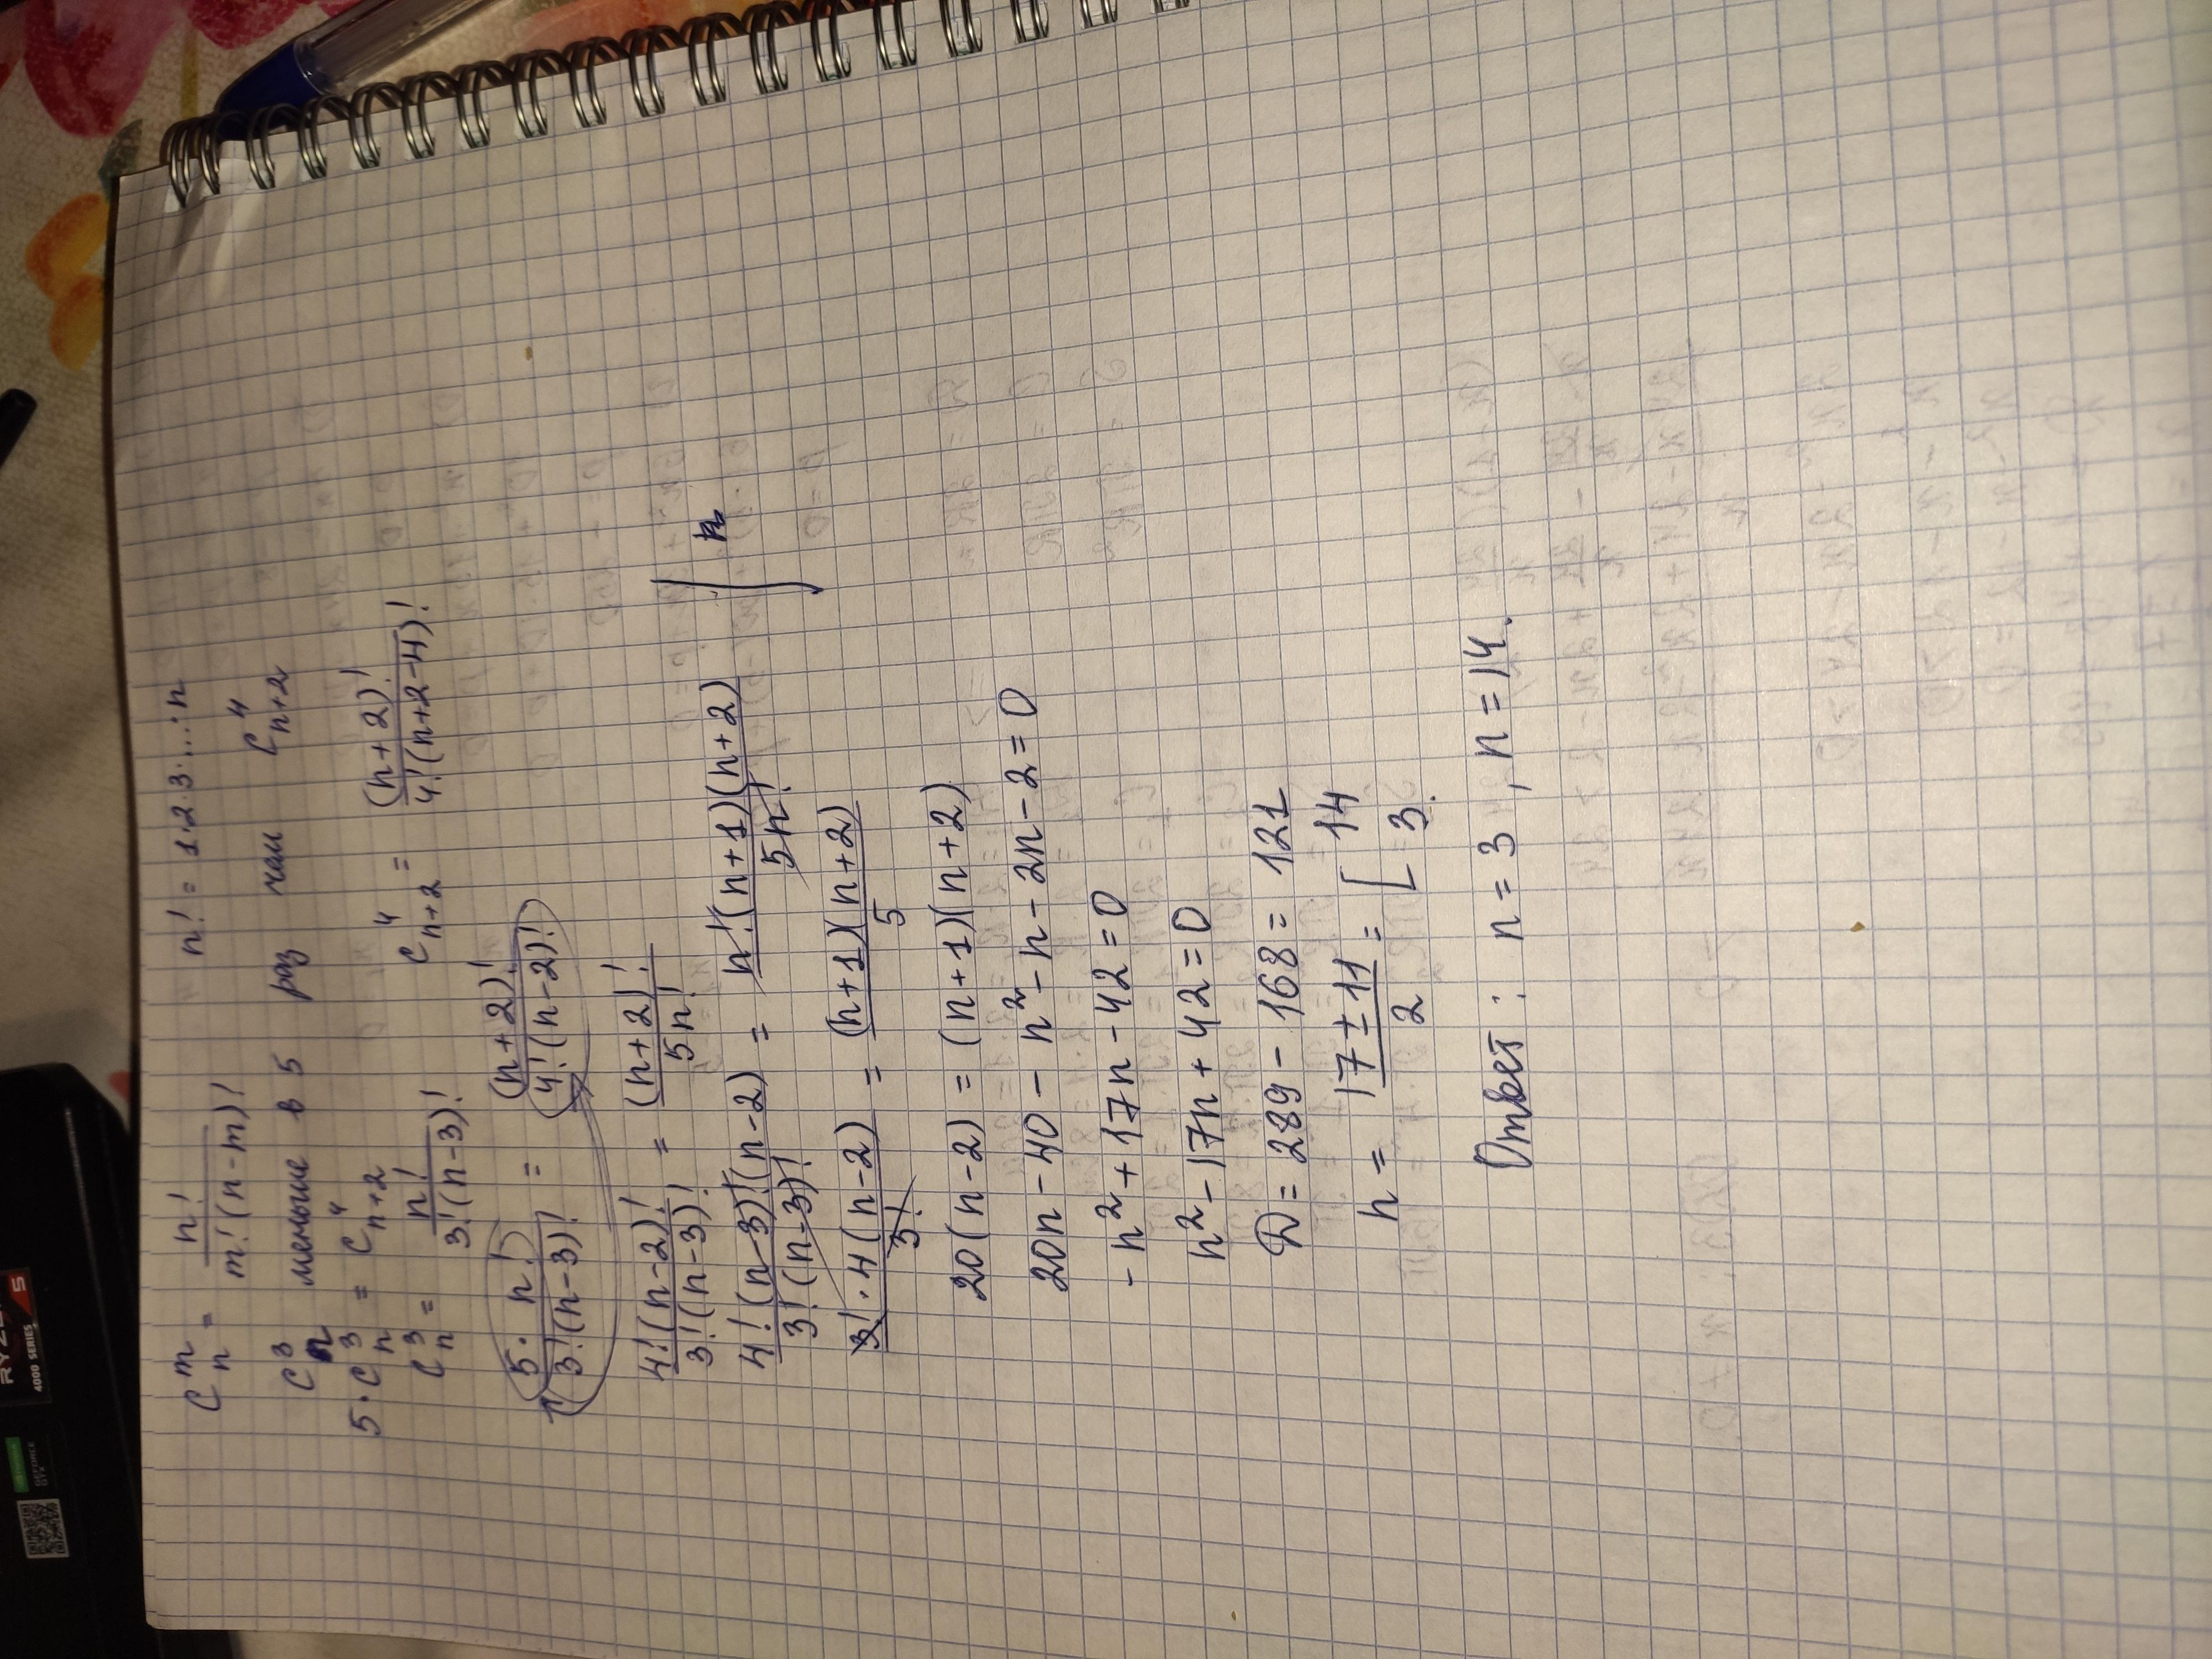 C_n^m = n! / m!(n-m)!   n! = 1·2·3·...·n
C_n^3 меньше в 5 раз чем C_{n+2}^4
5·C_n^3 = C_{n+2}^4
C_n^3 = n! / 3!(n-3)!   C_{n+2}^4 = (n+2)! / 4!(n+2-4)!
5·n! / 3!(n-3)! = (n+2)! / 4!(n-2)!
4!(n-2)! / 3!(n-3)! = (n+2)! / 5n!
4!(n-3)!(n-2) / 3!(n-3)! = n!(n+1)(n+2) / 5n!
3!·4(n-2) / 3! = (n+1)(n+2) / 5
20(n-2) = (n+1)(n+2)
20n-40-n²-n-2n-2=0
-n²+17n-42=0
n²-17n+42=0
D=289-168=121
n = 17±11 / 2 = [ 14
3.
Ответ: n=3, n=14.
RYZEN 5
4000 SERIES
GEFORCE
GTX